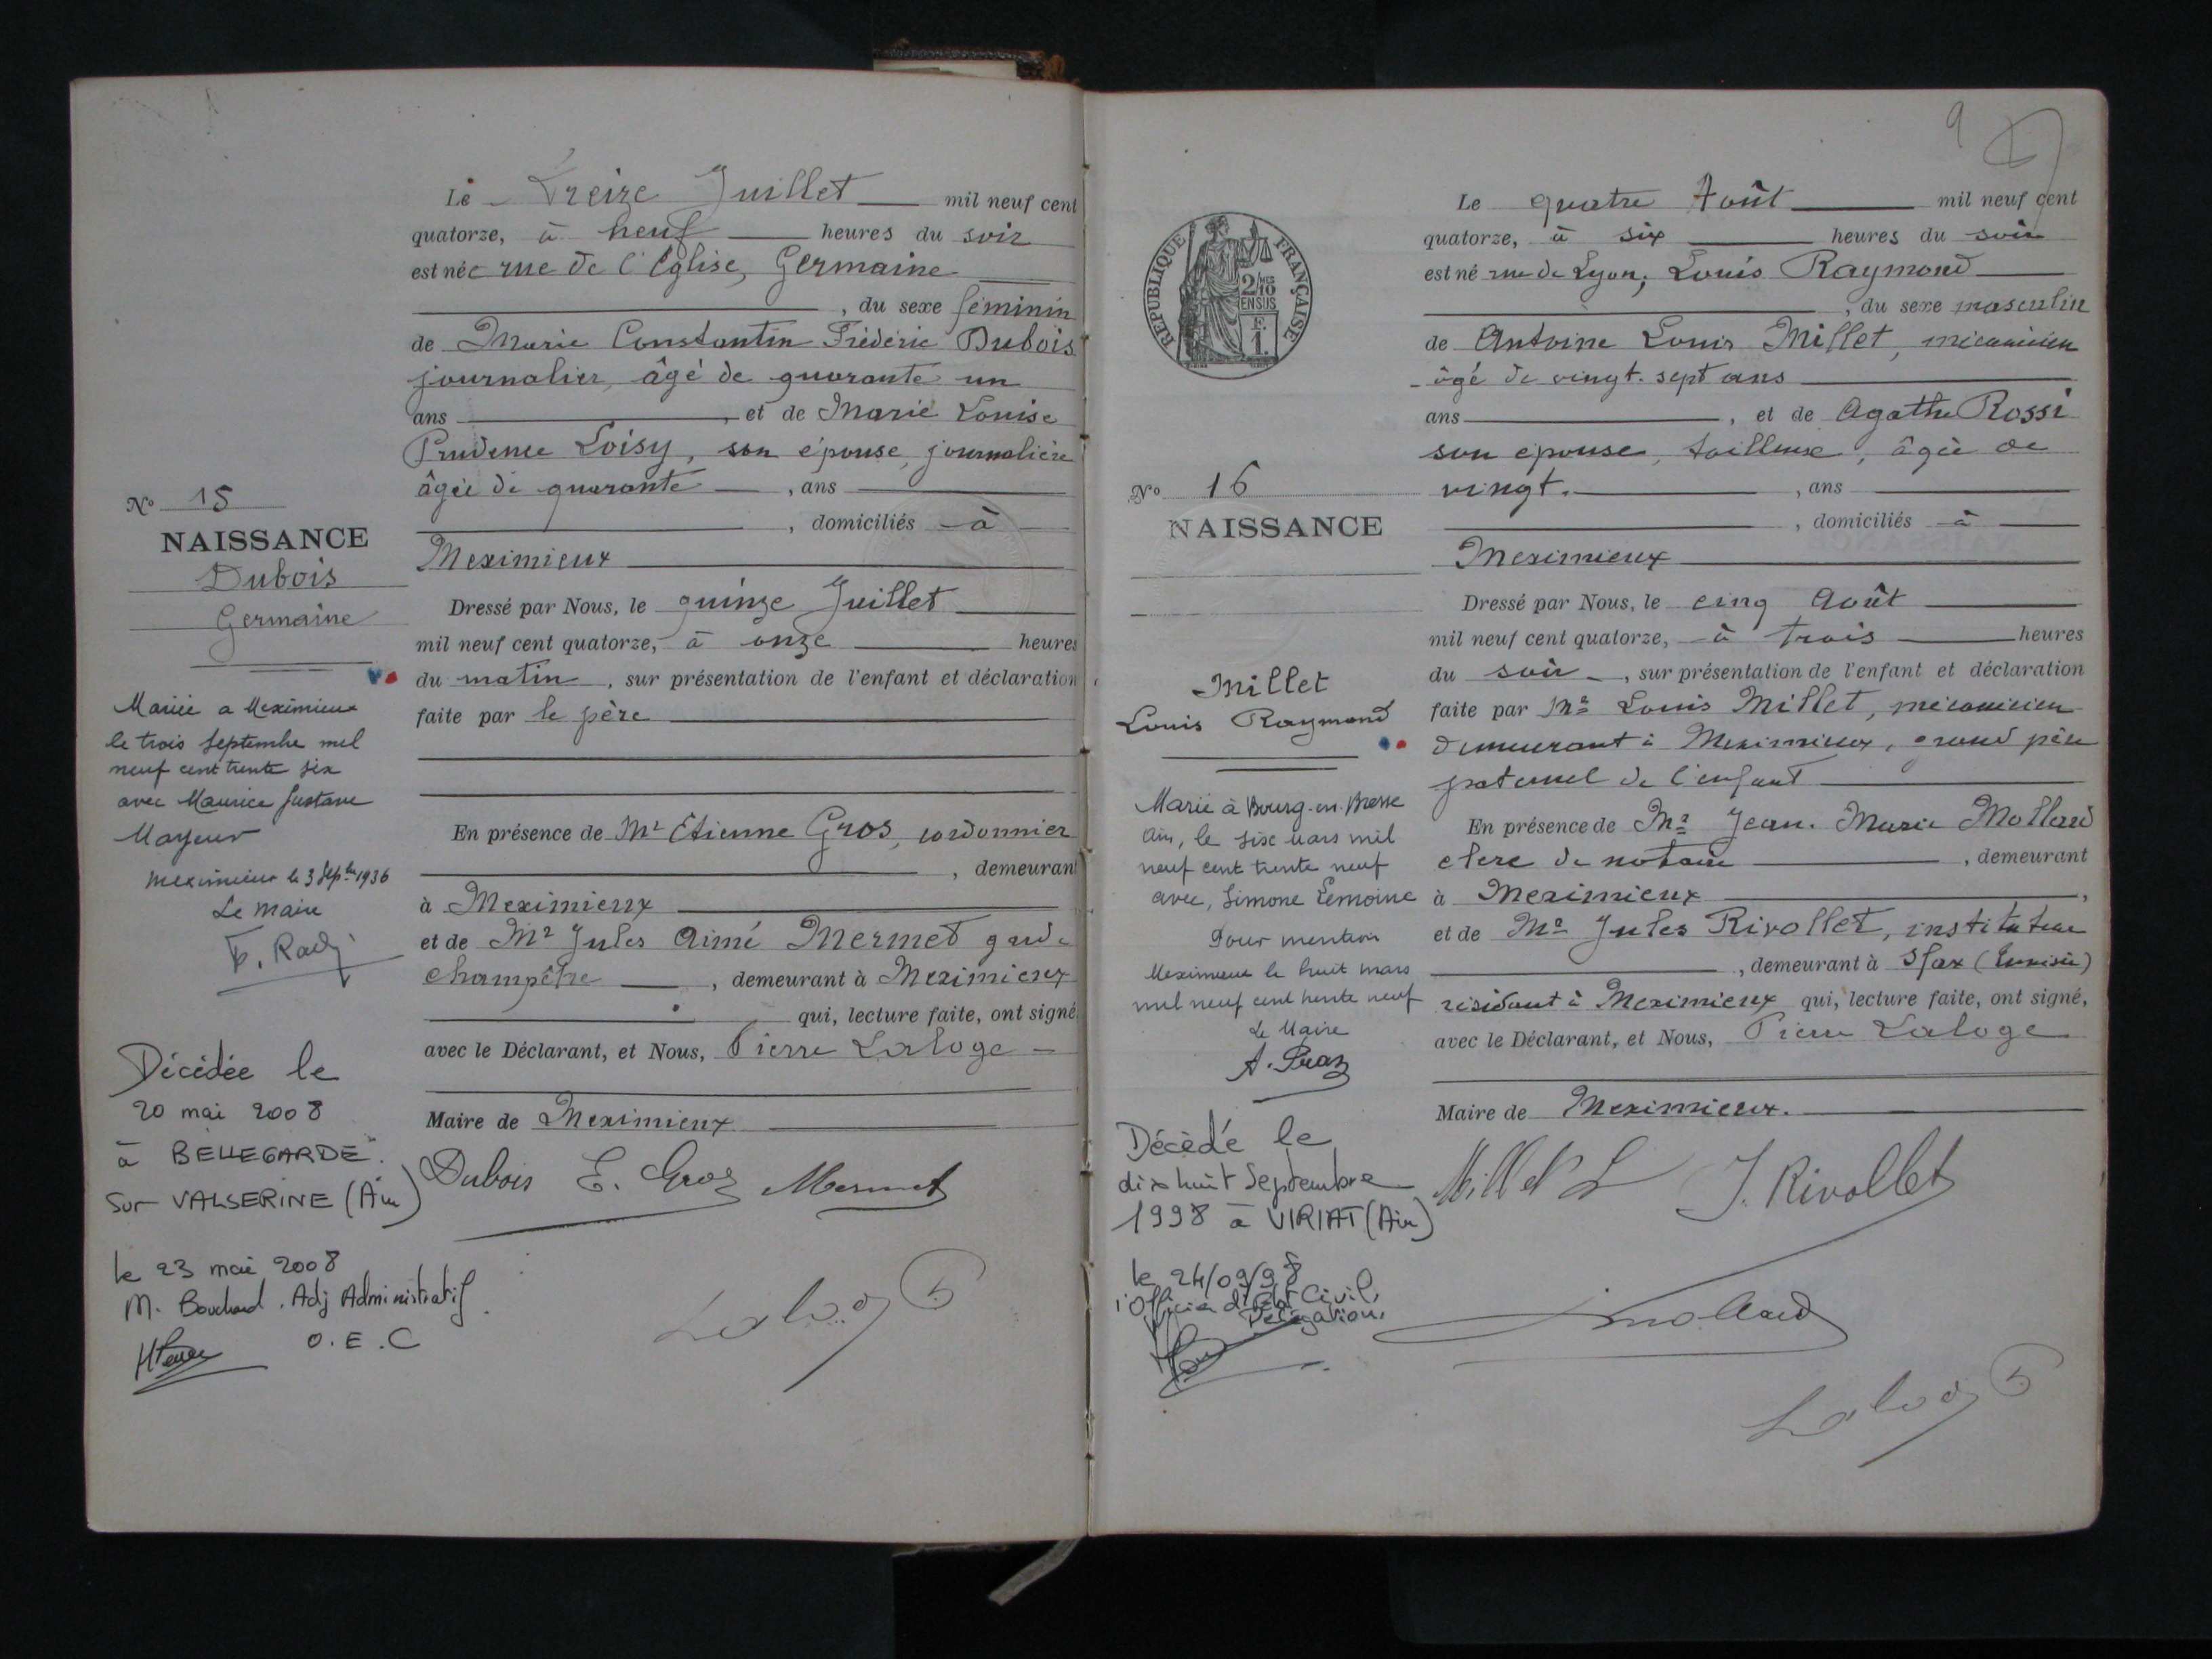 Le Treize Juillet mil neuf cent
quatorze, à neuf heures du soir
est née rue de l'Eglise, Germaine
, du sexe féminin
de Marie Constantin Frédéric Dubois
journalier, âgé de quarante un
ans , et de Marie Louise
Prudence Loisy, son épouse, journalière
âgée de quarante , ans
, domiciliés à
Meximieux
Dressé par Nous, le quinze Juillet
mil neuf cent quatorze, à onze heures
du matin , sur présentation de l'enfant et déclaration
faite par le père
En présence de Mr Etienne Gros, cordonnier
, demeurant
à Meximieux
et de Mr Jules Aimé Mermet garde
champêtre , demeurant à Meximieux
qui, lecture faite, ont signé
avec le Déclarant, et Nous, Pierre Laloge
Maire de Meximieux
Dubois E. Gros Mermet
Laloge
No 15
NAISSANCE
Dubois
Germaine
Mariée a Meximieux
le trois Septembre mil
neuf cent trente six
avec Maurice Gustave
Mayeur
Meximieux le 3 Septbre 1936
Le Maire
Décédée le
20 mai 2008
à BELLEGARDE
sur VALSERINE (Ain)
le 23 mai 2008
M. Bouchard. Adj Administratif
O.E.C
9
REPUBLIQUE FRANÇAISE
2/10
EN SUS
F.
1.
Le quatre Août mil neuf cent
quatorze, à six heures du soir
est né rue de Lyon, Louis Raymond
, du sexe masculin
de Antoine Louis Millet, mécanicien
âgé de vingt-sept ans
ans , et de Agathe Rossi
son épouse, tailleuse, âgée de
vingt- , ans
, domiciliés à
Meximieux
Dressé par Nous, le cinq Août
mil neuf cent quatorze, à trois heures
du soir , sur présentation de l'enfant et déclaration
faite par Mr Louis Millet, mécanicien
demeurant à Meximieux, grand père
paternel de l'enfant
En présence de Mr Jean-Marie Mollard
clerc de notaire , demeurant
à Meximieux ,
et de Mr Jules Rivollet, instituteur
, demeurant à Sfax (Tunisie)
résidant à Meximieux qui, lecture faite, ont signé,
avec le Déclarant, et Nous, Pierre Laloge
Maire de Meximieux.
Millet L J. Rivollet
Mollard
Laloge
No 16
NAISSANCE
Millet
Louis Raymond
Marié à Bourg-en-Bresse
Ain, le six mars mil
neuf cent trente neuf
avec, Simone Lemoine
Pour mention
Meximieux le huit mars
mil neuf cent trente neuf
Le Maire
Décédé le
dix huit Septembre
1998 à VIRIAT (Ain)
le 24/09/98
l'Officier d'Etat Civil,
Délégation,